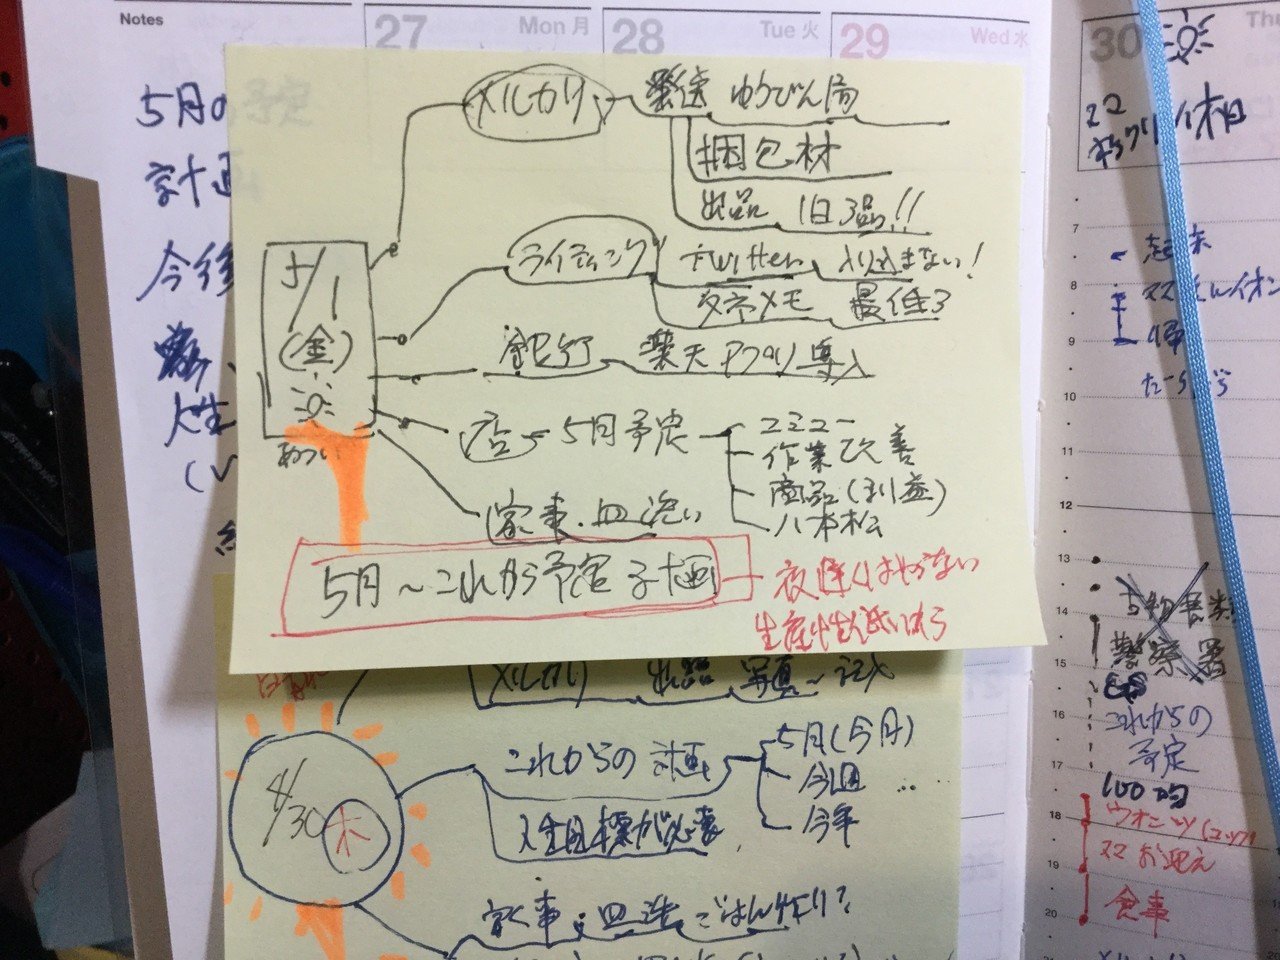 Notes
27 Mon 月
28 Tue 火
29 Wed 水
30 Thu
5月の予定
計画
今後
人生
メルカリ 発送 ゆうびん局
梱包材
出品 1日3品!!
ライティング twitter 入り込まない!
タネメモ 最低3
銀行 楽天アプリ導入
5/1
(金)
あつい
店 5月予定
作業改善
商品(利益)
八本松
家事・皿洗い
5月~これから予定 計画
夜遅くはやらない
生産性低いから
メルカリ 出品 写真~記入
4/30
木
これからの計画
5月(今月)
今週 …
今年
人生目標が必要
家事・皿洗 ごはん作り?
休日
7
8
9
10
11
12
13
15
16
17
18
19
20
起床
帰
警察署
これからの
予定
100均
お迎え
食事